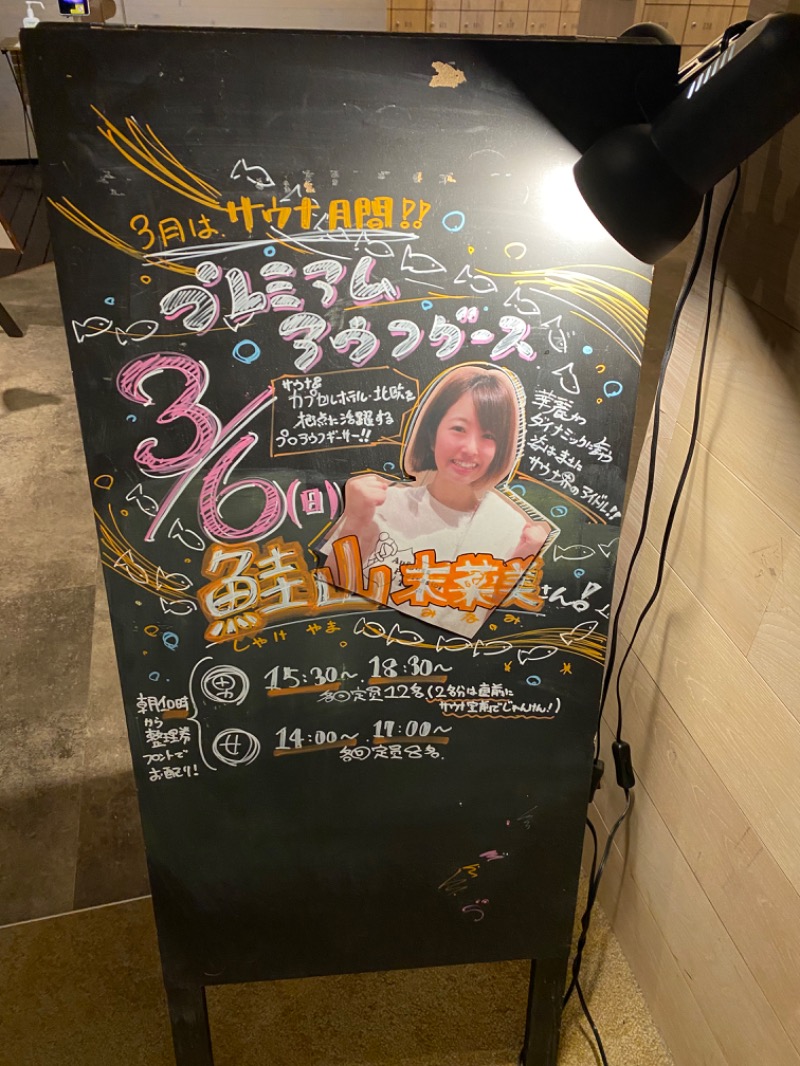 3月は、サウナ月間!!
プレミアム
アウフグース
3/6(日)
サウナ&
カプセルホテル・北欧を
拠点に活躍する
プロアウフギーサー!!
華麗かつ
ダイナミックに舞う
姿はまさに
サウナ界のアイドル!!
鮭山未菜美さん!
しゃけ やま み な み
朝10時
から
整理券
フロントで
お配り!
男 15:30〜 18:30〜
各回定員12名(2名分は直前に
サウナ室前でじゃんけん!)
女 14:00〜 17:00〜
各回定員8名.